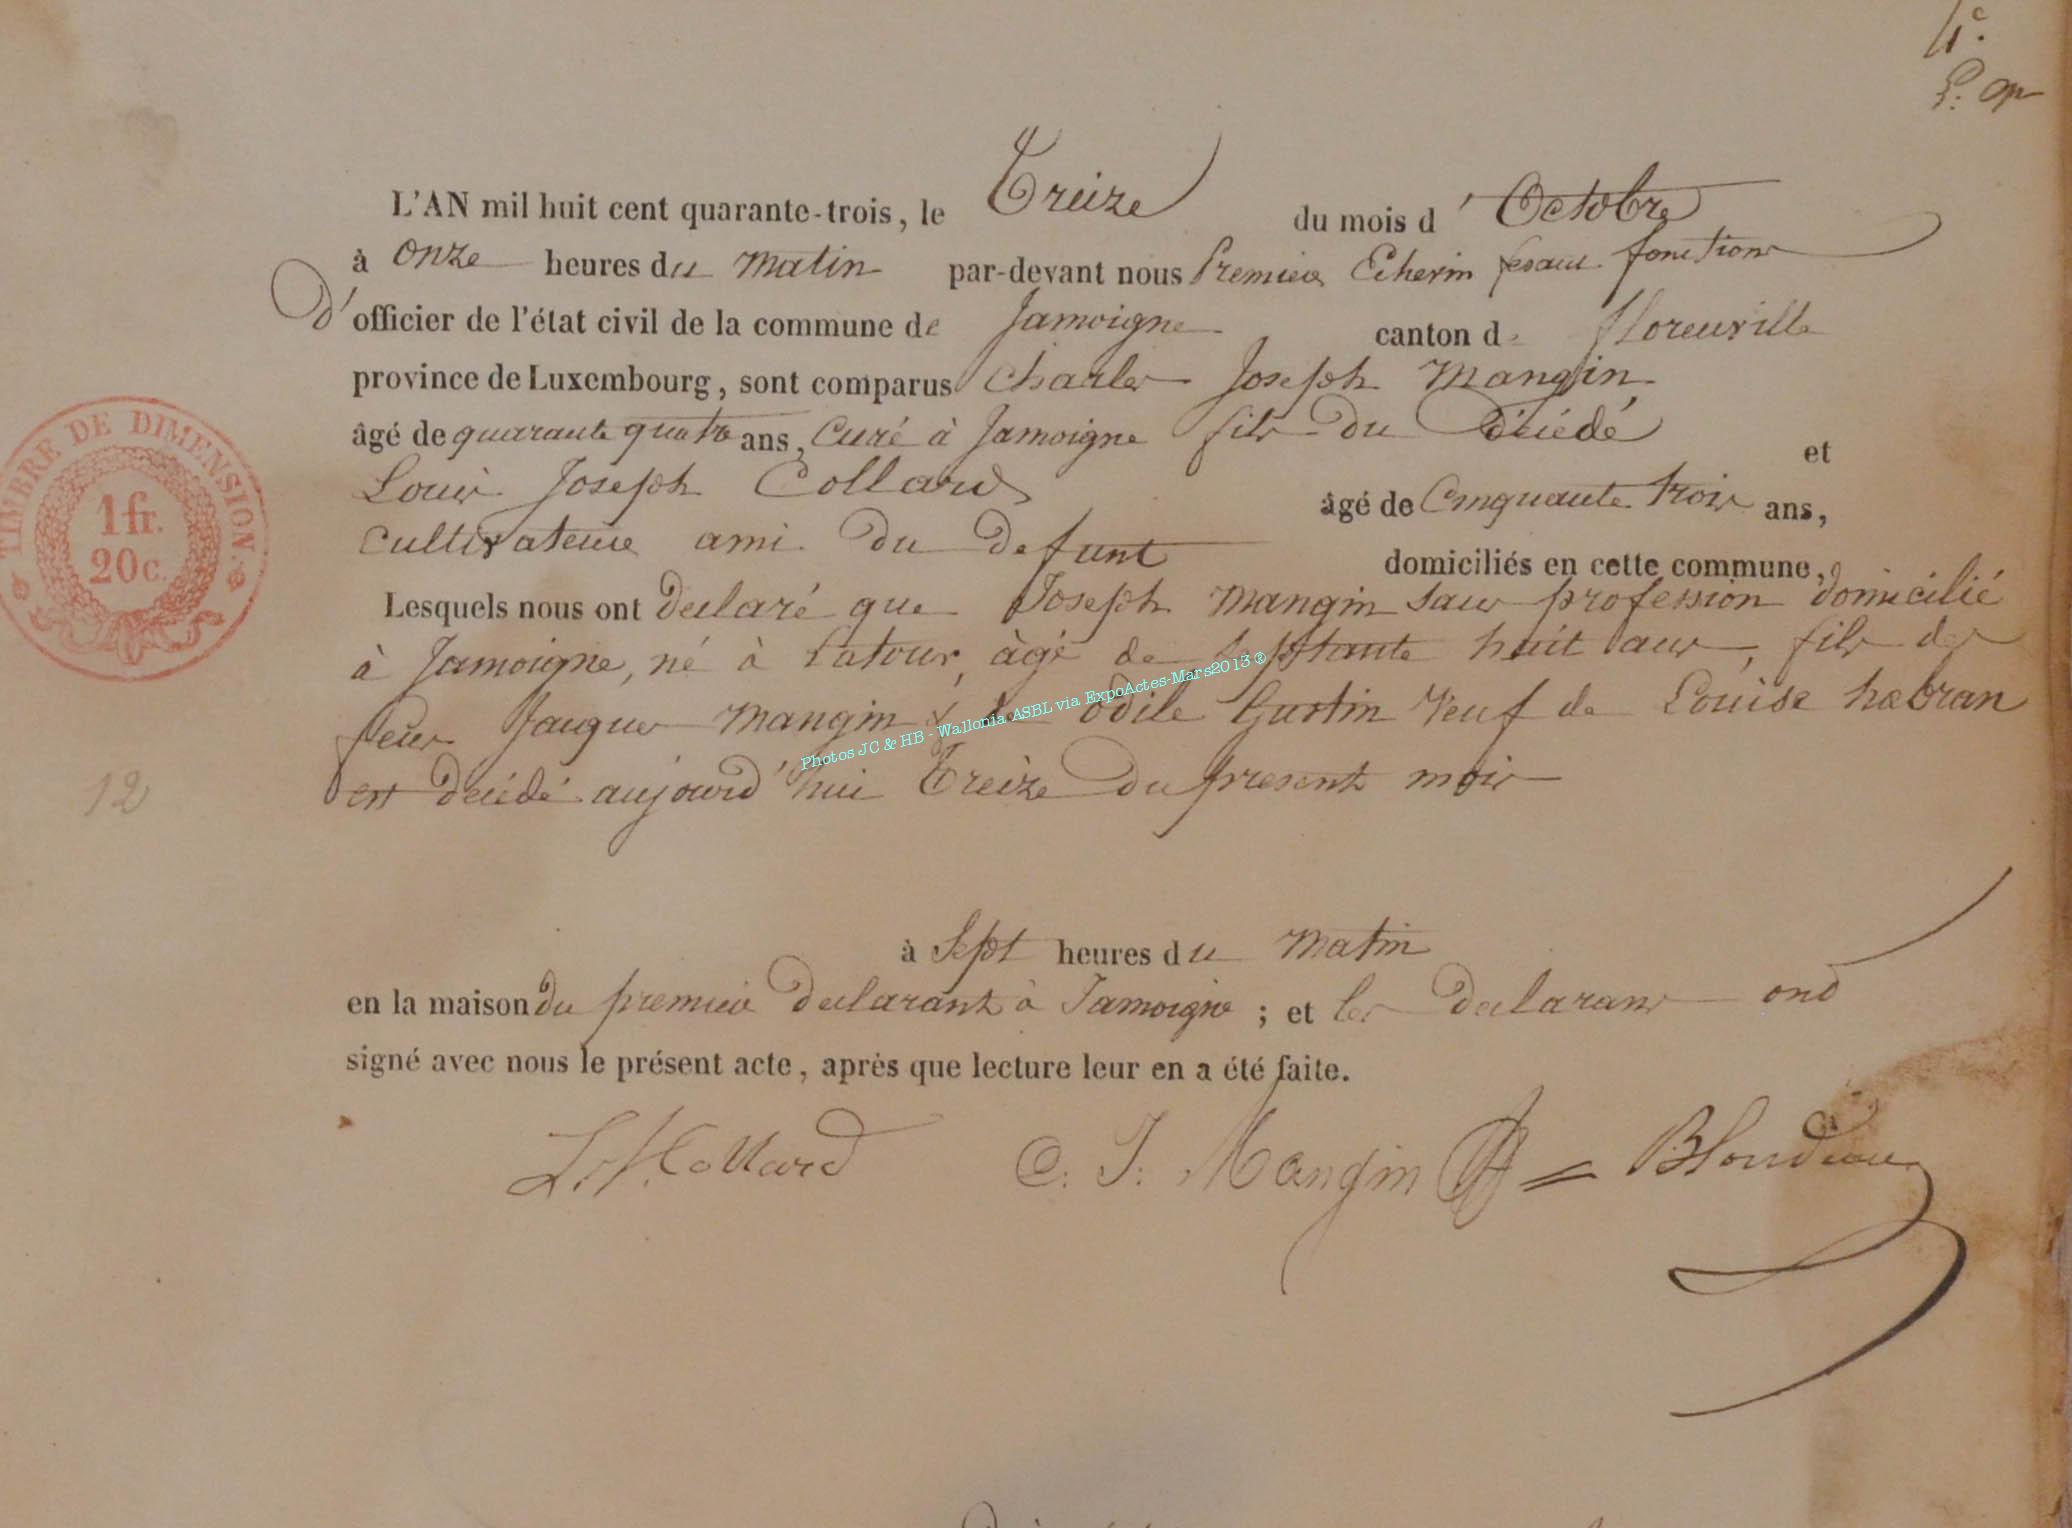 4e.
L'AN mil huit cent quarante-trois, le Treize du mois d'Octobre
à onze heures du matin par-devant nous Premier Echevin fesant fonctions
d'officier de l'état civil de la commune de Jamoigne canton de florenville
province de Luxembourg, sont comparus Charles Joseph Mangin
âgé de quarante quatre ans, Curé à Jamoigne fils du décédé et
Louis Joseph Collard âgé de Cinquante trois ans,
Cultivateur ami du defunt domiciliés en cette commune,
Lesquels nous ont declaré que Joseph Mangin sans profession domicilié
à Jamoigne, né à Latour, âgé de septante huit ans, fils des
feus Jacques Mangin & de Odile Gustin Veuf de Louise habran
est décédé aujourd'hui Treize du present mois
à Sept heures du Matin
en la maison du premier declarant à Jamoigne ; et les declarans ond
signé avec nous le présent acte, après que lecture leur en a été faite.
L. J. Collard C. J. Mangin Blondeau
TIMBRE DE DIMENSION.
1 fr.
20 c.
12
Photos JC & HB - Wallonia ASBL via ExpoActes-Mars2013 ®